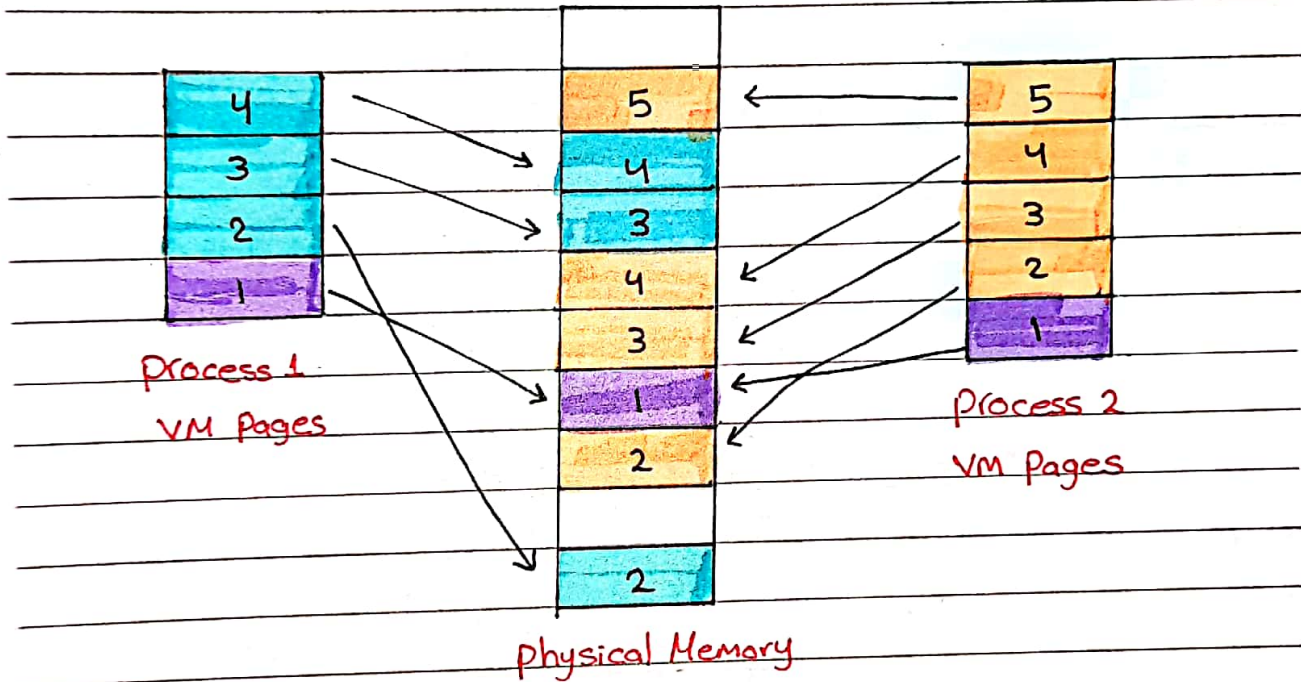 4
3
2
1
Process 1
VM Pages
5
4
3
4
3
1
2
2
Physical Memory
5
4
3
2
1
Process 2
VM Pages